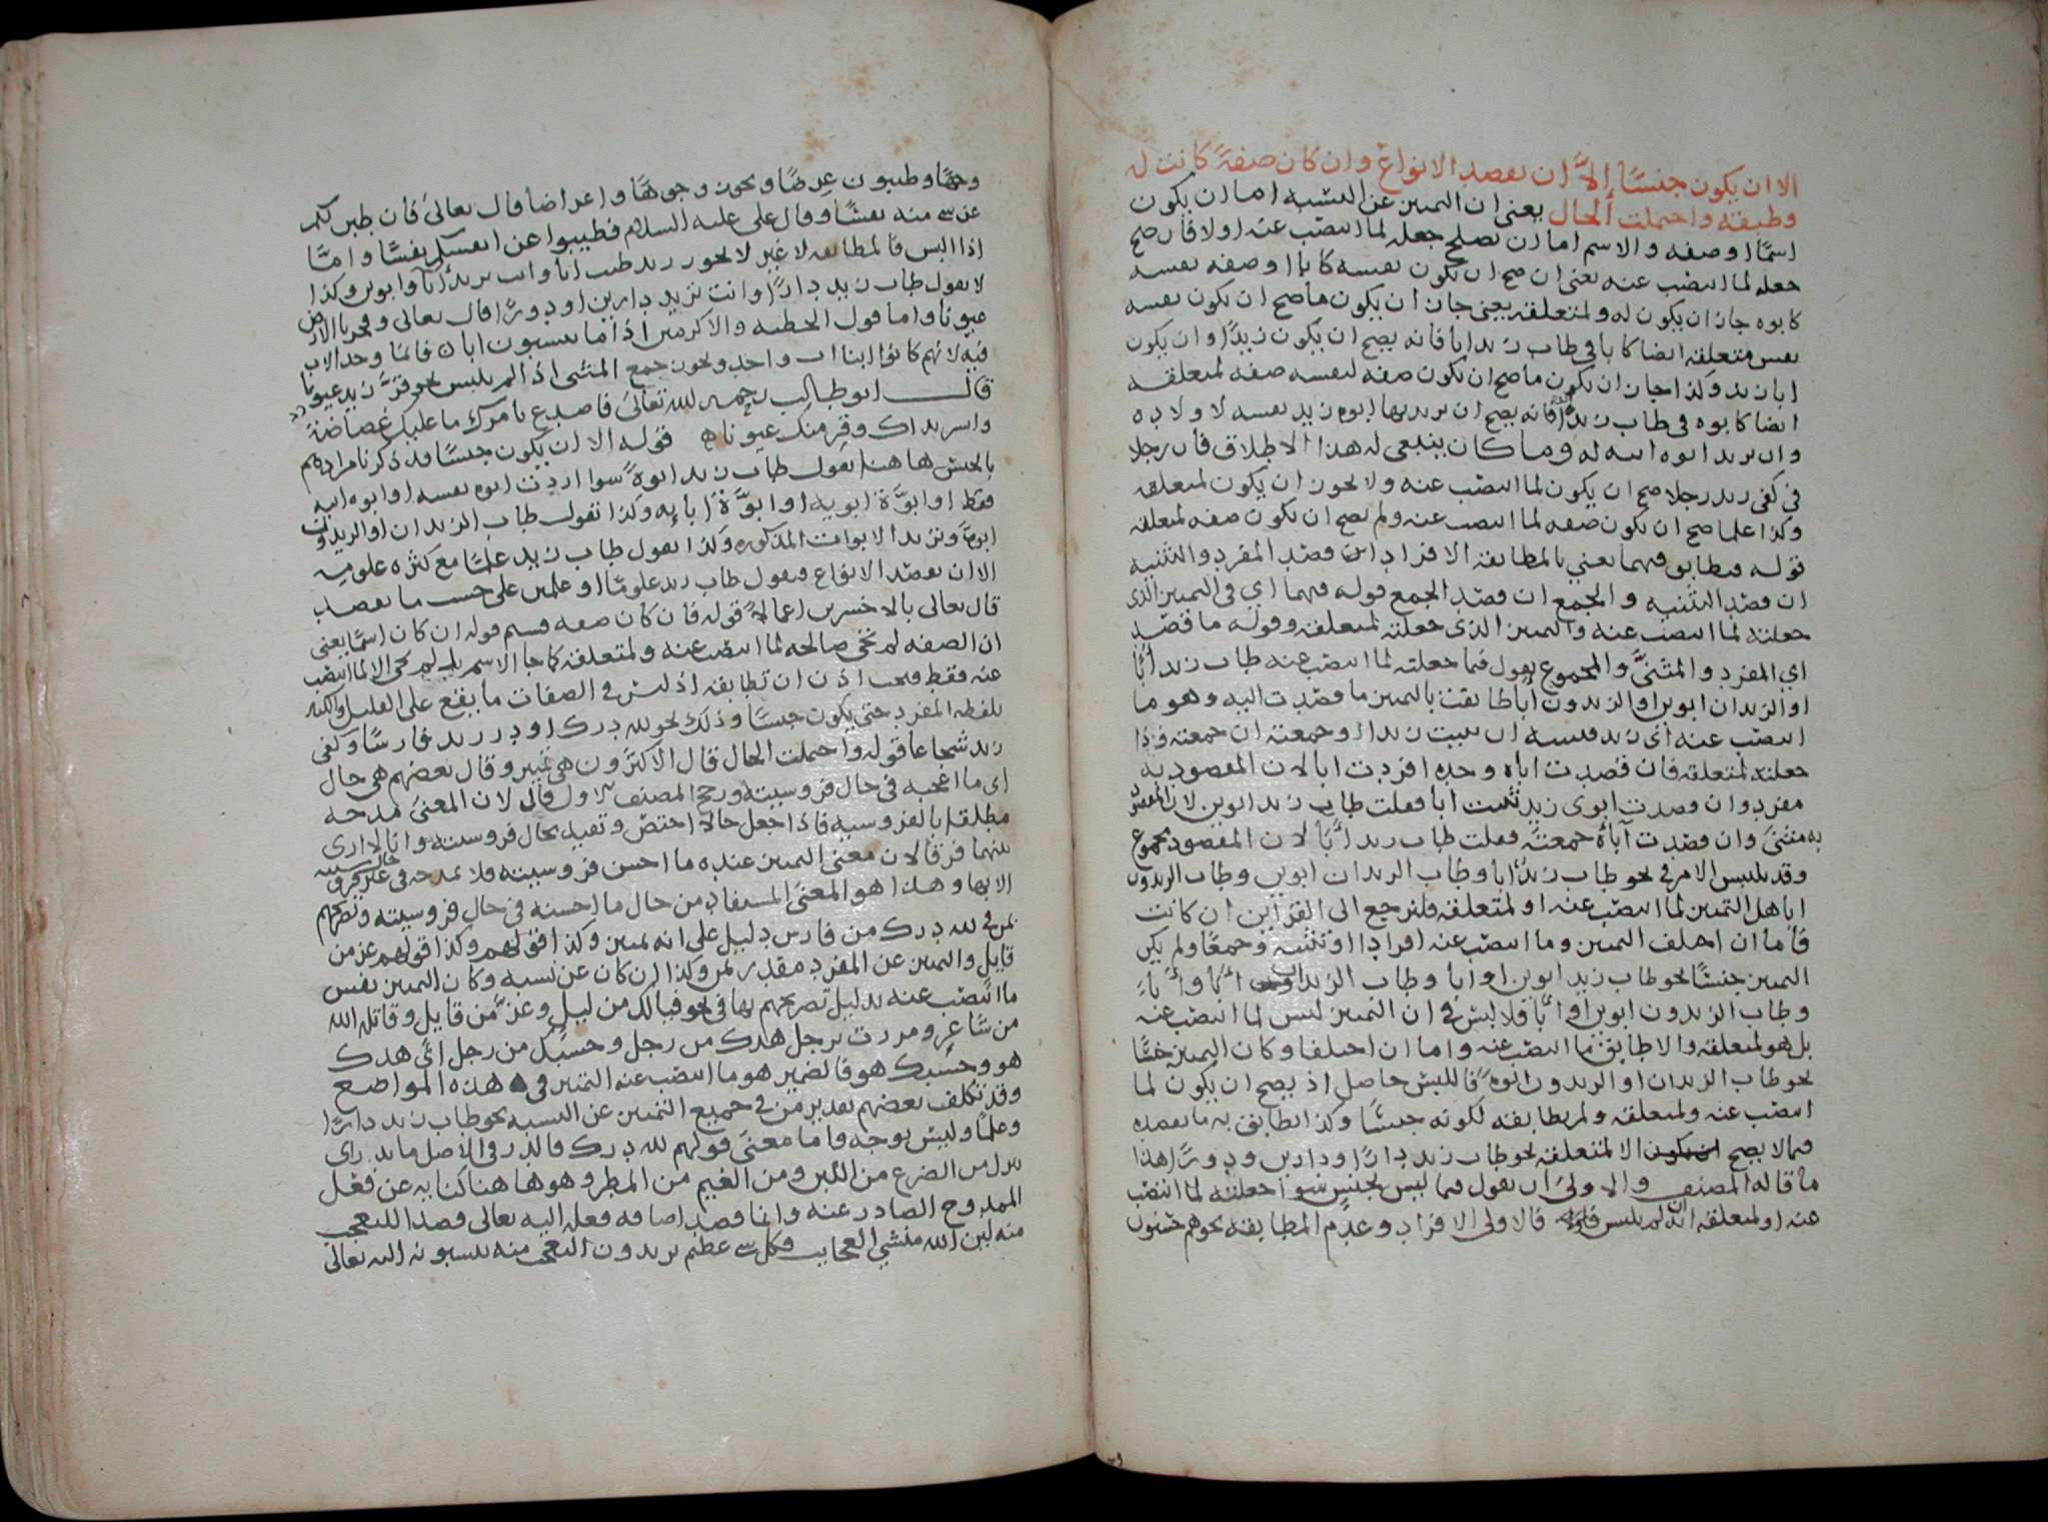 الا ان يكون جنسًا إلاَّ ان يقصد الانواع وان كان صفةً كانت له
وطبقه واحتملت الحال يعنى ان التميىز عن النسبه اما ان يكون
اسمًا او صفه والاسم اما ان يصلح جعله لما انتصب عنه اولا فان صح
جعله لما انتصب عنه يعنى ان صح ان يكون نفسه كابا او صفه نفسه
كابوه جاز ان يكون له ولمتعلقه يعنى جاز ان يكون ما صح ان يكون نفسه
نفس متعلقه ايضا كابا فى طاب زيد ابا فانه يصح ان يكون زيدًا وان يكون
ابا زيد وكذا جاز ان يكون ما صح ان يكون صفه لنفسه صفه لمتعلقه
ايضا كابوه فى طاب زيد ابوة فانه يصح ان يريد بها ابوه زيد نفسه لاولاده
وان يريد ابوه ابيه له وما كان ينبغى له هذا الاطلاق فان رجلا
فى كفى زيد رجلا صح ان يكون لما انتصب عنه ولا يجوز ان يكون لمتعلقه
وكذا علما صح ان يكون صفه لما انتصب عنه ولم يصح ان يكون صفه لمتعلقه
قوله فيطابق فيهما يعني بالمطابقه الافراد ان قصد المفرد والتثنيه
ان قصد التثنيه والجمع ان قصد الجمع قوله فيهما اي فى التميىز الذى
جعلته لما انتصب عنه والتميىز الذى جعلته لمتعلقه وقوله ما قصد
اي المفرد والمثنىَّ والمجموع يقول فيما جعلته لما انتصب عنه طاب زيد أبًا
او الزيدان ابوين او الزيدون اباء طابقت بالتميىز ما قصدت اليه وهو ما
انتصب عنه اى زيد فىسه ان ثنيت زيدا او جمعته ان جمعته واذا
جعلته لمتعلقه فان قصدت اباه وحده افردت ابا لان المقصود به
مفرد وان قصدت ابوى زيد ثنيت ابا فقلت طاب زيد ابوين لان المقصود
به مثنىَ وان قصدت آباءه جمعته فقلت طاب زيد أبا لان المقصود مجموع
وقد يلتبس الامر فى نحو طاب زيدٌ ابا وطاب الزيدان ابوين وطاب الزيدون
ابا هل التميىز لما انتصب عنه او لمتعلقه فليرجع الى القراين ان كانت
فاما ان اختلف التميىز وما انتصب عنه افرادا وتثنيه وجمعًا ولم يكن
التميىز جنسًا نحو طاب زيد ابوين او ابا وطاب الزيدان أبًا وأباءَ
وطاب الزيدون ابوين او أبًا فلا لبس فى ان التميىز ليس لما انتصب عنه
بل هو لمتعلقه والا طابق ما انتصب عنه واما ان اختلفا وكان التميىز جنسًا
نحو طاب الزيدان او الزيدون ابوه فاللبس حاصل اذ يصح ان يكون لما
انتصب عنه ولمتعلقه ولم يطابقه لكونه جنسًا وكذا يطابق به ما يقصده
فيما لا يصح الا لمتعلقه نحو طاب زيد دارًا ودارين ودورًا هذا
ما قاله المصنف والاولى ان يقول فيما ليس بجنس سوا جعلته لما انتصب
عنه او لمتعلقه ان لم يلبس فالاولى الافراد وعدم المطابقه نحو هم حسنون
وجهًا وطيبون عِرضًا ويجوز وجوهًا واعراضا قال تعالىَ فان طبن لكم
عن شى منه نفسًا وقال على عليه السلام فطيبوا عن انفسكم نفسًا وامَّا
اذا البس فالمطابقه لا غير لا يجوز زيد طيب ابا وانت تريد أبآ وابوين وكذا
لا يقول طاب زيد دارًا وانت تريد دارين او دورًا قال تعالى وفجرنا الارض
عيونا واما قول الحطيه والاكرمين اذا ما ينسبون ابا فانما وحد الاب
فيه لانهم كانوا ابنا اب واحد ويجوز جمع المثنى اذا لم يلبس نحو قرَّ زيد عيونا
قال ابو طالب رحمه الله تعالىَ فاصدع بامرك ما عليك غضاضة
وابشر بذاك وقر منك عيونا قوله الا ان يكون جنسًا قد ذكرنا مرادهم
بالجنس ها هنا يقول طاب زيد ابوهً سوا اردت ابوه نفسه او ابوه ابيه
فقط او ابوَّة ابويه او ابوَّة أبايه وكذا تقول طاب الزيدان او الزيدون
ابوهً وتريد الابوات المذكوره وكذا يقول طاب زيد علمًا مع كثره علومه
الا ان يقصد الانواع فيقول طاب زيد علومًا او علمين على حسب ما يقصد
قال تعالى بالاخسرين اعمالاً قوله فان كان صفه قسيم قوله ان كان اسمًا يعنى
ان الصفه لم تجى صالحه لما انتصب عنه ولمتعلقه كما جا الاسم بل لم تجى الا لما انتصب
عنه فقط فيجب اذن ان تطابقه اذ ليس فى الصفات ما يقع على القليل والكثير
بلفظه المفرد حتى يكون جنسًا وذلك نحو لله درك او در زيد فارسًا وكفى
زيد شجاعا قوله واحتملت الحال قال الاكثرون هى تميىز وقال بعضهم هى حال
اى ما اعجبه فى حال فروسيته ورجح المصنف الاول قال لان المعنىَ مدحه
مطلقا بالفروسيه فاذا جعل حالاً اختص وتقيد بحال فروسيته وانا لا ارى
بينهما فرقا لان معنى التميىز عنده ما احسن فروسيته فلا يمدحه فى غير حال فروسيته
الا بها وهذا هو المعنىَ المستفاد من حال ما احسنه فى حال فروسيته وتصريحهم
بمن فى لله درك من فارس دليل على انه تميىز وكذا قولهم وكذا قولهم عز من
قايل والتميىز عن المفرد مقدر بمن وكذا ان كان عن نسبه وكان التميىز نفس
ما انتصب عنه بدليل تصريحهم بها فى نحو فيالك من ليل وعزَّ من قايل وقاتله الله
من شاعر ومررت برجل هدك من رجل وحسبُك من رجل اىَ هدك
هو وحسبك هو فالضمير هو ما انتصب عنه التميىز فى هذه المواضع
وقد تكلف بعضهم تقدير من فى جميع التميىز عن النسبه نحو طاب زيد دارًا
وعلمًا وليس بوجه واما معنىَ قولهم لله درك فالدر فى الاصل ما يدر اى
ينزل من الضرع من اللبن ومن الغيم من المطر وهو ها هنا كنايه عن فعل
الممدوح الصادر عنه وانما قصد اضافه فعله اليه تعالى قصدا للتعجب
منه لان الله منشي العجايب فكل شى عظيم يريدون التعجب منه ينسبونه اليه تعالى